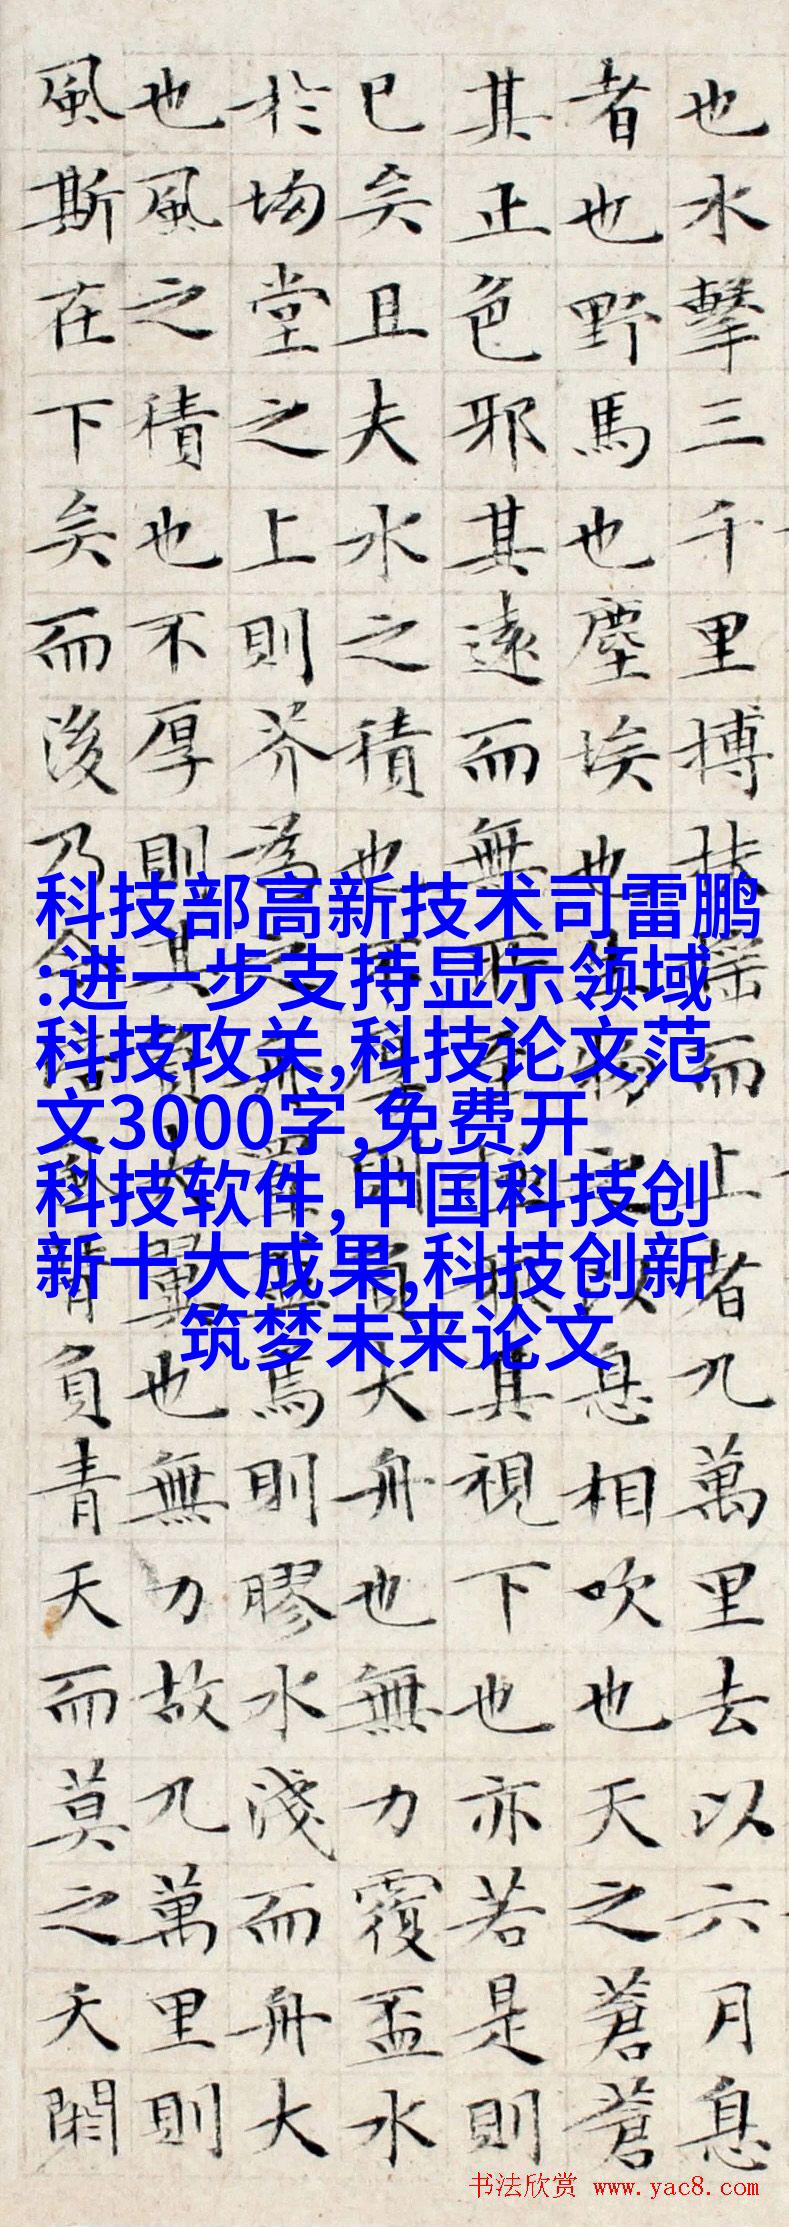 也水擊三千里搏扶搖而上者九萬里去以六月息
者也野馬也塵埃也生物之以息相吹也天之蒼蒼
其正色邪其遠而無所至極邪其視下也亦若是則
已矣且夫水之積也不厚則負大舟也無力覆盃水
於坳堂之上則芥為之舟置盃焉則膠水淺而舟大
也風之積也不厚則其負大翼也無力故九萬里則
風斯在下矣而後乃今培風背負青天而莫之夭閼
科技部高新技术司雷鹏
:进一步支持显示领域
科技攻关,科技论文范
文3000字,免费开
科技软件,中国科技创
新十大成果,科技创新
筑梦未来论文
书法欣赏 www.yac8.com